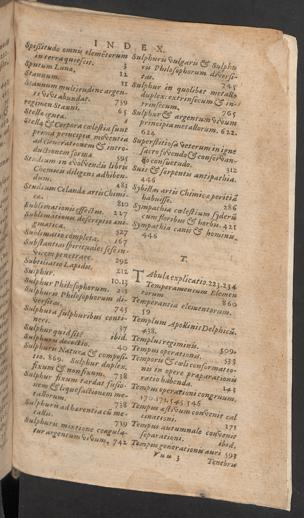 INDEX.
Spissitudo omnis elementorum
in terra quiescit. 3
Spurum Luna. 12
Stannum. 11
Stannum multitudine argen-
ti vivi abundat. 739
regimen Stanni. 65
Stella ignea. 4
Stella & Corpora cœlestia sunt
prima principia moventia
ad generationem & intro-
ductionem formæ. 595
Studium in evolvendis libris
Chemicis diligens adhiben-
dum. 481
Studium Calanda artis Chimi-
ca. 810
Sublimationis effectus. 227
Sublimationis descriptio ani-
gmatica. 527
Sublimatio completa. 167
Substantias spirituales sese in-
vicem penetrare. 292
Subtiliatio Lapidis. 212
Sulphur. 10.13
Sulphur Philosophorum. 218
Sulphur Philosophorum di-
versitas. 745
Sulphura sulphuribus conti-
neri. 37
Sulphur quid sit? ibid.
Sulphuris decoctio. 40
Sulphuris Natura & composi-
tio. 869. Sulphur duplex,
fixum & non fixum. 738
Sulphur fixum tardat fusio-
nem & liquefactionem me-
tallorum. 738
Sulphuris adharentia cū me-
tallis. 739
Sulphuris mixtione coagula-
tur argentum vivum. 742
Sulphuris vulgaris & Sulphu-
ris Philosophorum diversi-
tas. 745
Sulphur in quolibet metallo
duplex: extrinsecum & in-
trinsecum. 765
Sulphur & argentum vivum
principia metallorum. 622.
624
Superstitiosa veterum in igne
sacro fovendo & conservan-
do consuetudo. 312
Suis & serpentis antipathia.
446
Sybillam artis Chimica peritiā
habuisse. 286
Sympathia cœlestium syderū
cum floribus & herbis. 421
Sympathia canis & hominis.
446
T.
Tabula explicatio. 223.234
Temperamentum Elemen-
torum. 860
Temperantia elementorum.
59
Templum Apollinis Delphicū.
438.
Templus regiminis. 599.
Tempus operationis. 533
Tempore & cœli conformatio-
nis in opere præparationis
ratio habenda. 143
Tempus operationi congruum.
170. 171. 545. 546
Tempus æstivum convenit cal
cinationi. 271
Tempus autumnale convenit
separationi. ibid.
Tempus generationis auri 593
Vuu 3 Tenebræ